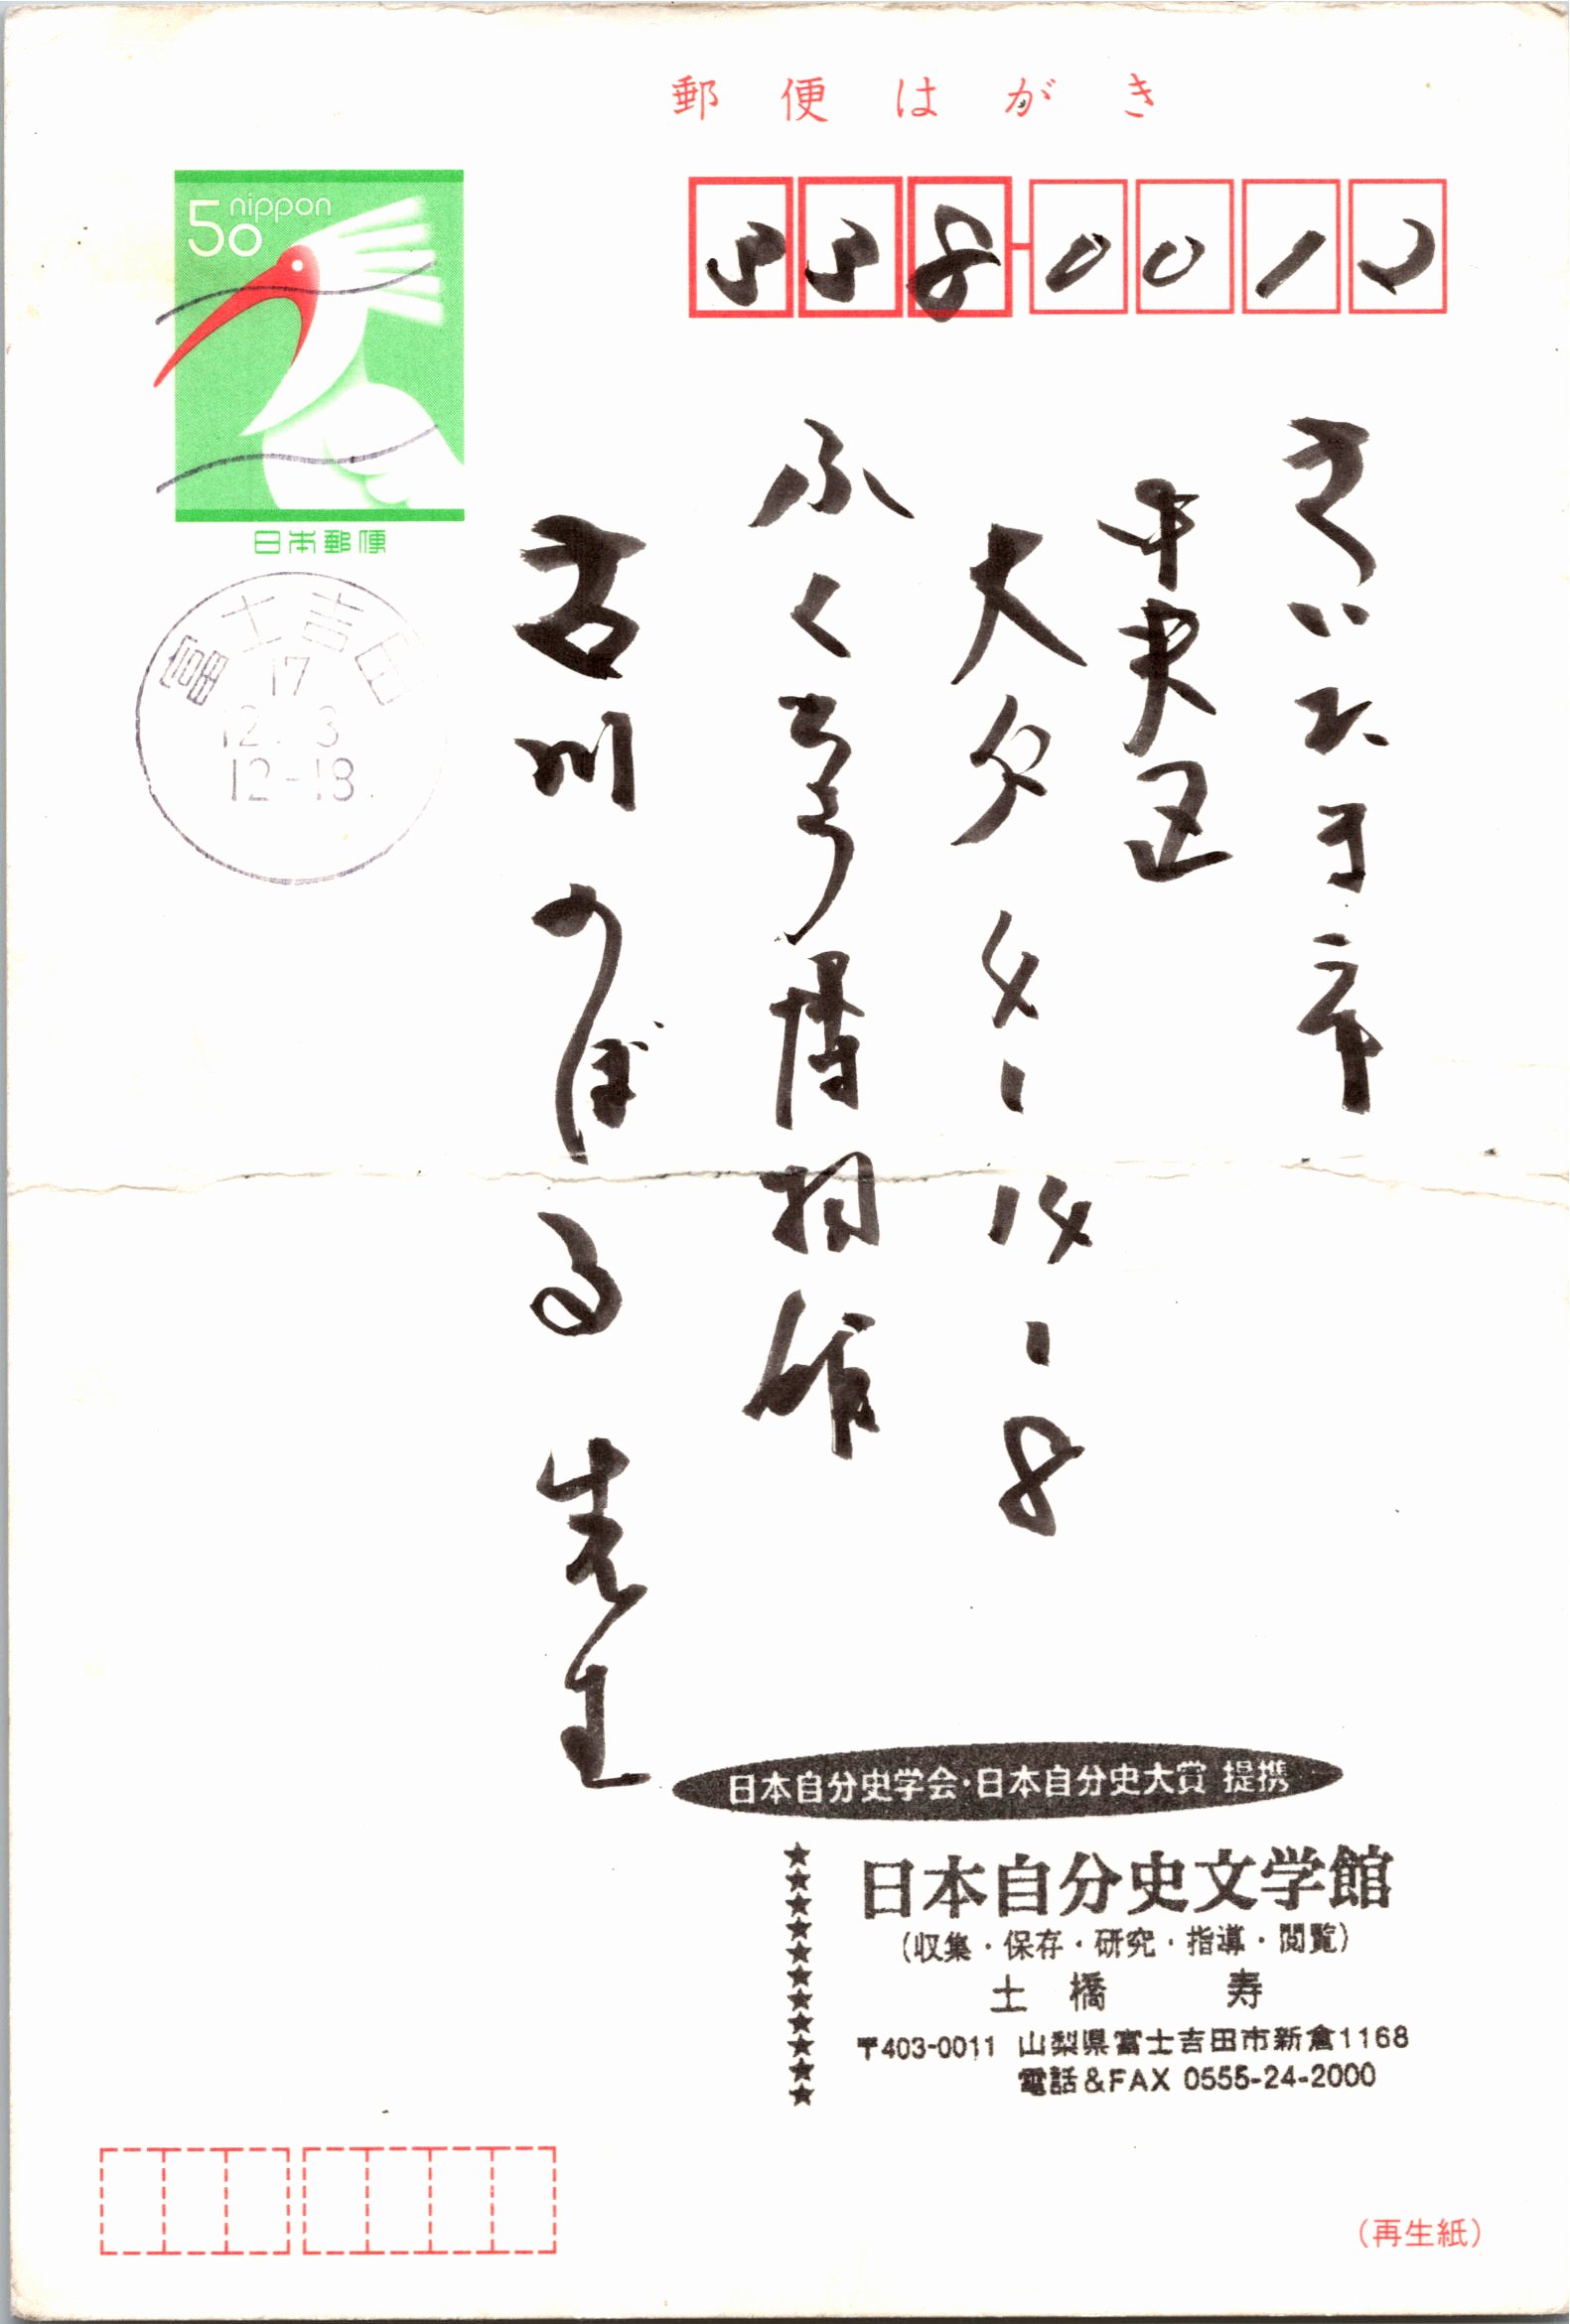 郵便はがき
50 nippon
日本郵便
富士吉田
17
12. 3
12-18
558-0012
さいたま市
中央区
大戸 4-14-8
ふくろう博物館
古川のぼる 先生
日本自分史学会・日本自分史大賞 提携
日本自分史文学館
(収集・保存・研究・指導・閲覧)
土橋 寿
〒403-0011 山梨県富士吉田市新倉1168
電話&FAX 0555-24-2000
(再生紙)